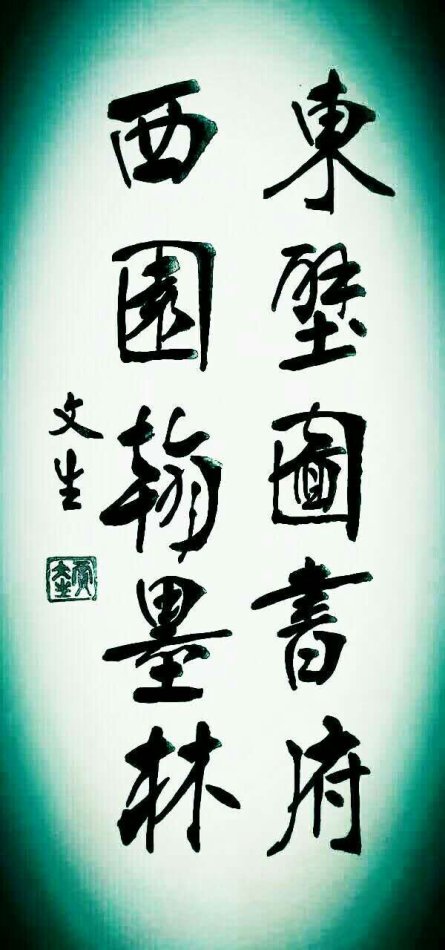 東壁圖書府
西園翰墨林
文生